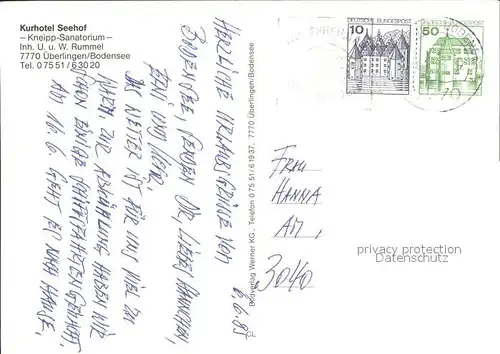 Kurhotel Seehof
—Kneipp-Sanatorium—
Inh. U. u. W. Rummel
7770 Überlingen/Bodensee
Tel. 07551/63020
10 DEUTSCHE BUNDESPOST
50 DEUTSCHE BUNDESPOST
HERZLICHE URLAUBSGRÜSSE VOM
BODENSEE, SENDEN DIR, LIEBES HANNCHEN,
UND
DAS WETTER IST FÜR UNS VIEL ZU
WARM. ZUR ABKÜHLUNG HABEN WIR
SCHON EINIGE SCHIFFAHRTEN GEMACHT.
AM 16.6. GEHT ES NACH HAUSE.
Bildverlag Werner KG., Telefon 07551/61937, 7770 Überlingen/Bodensee
6.6.85
FRAU
HANNA
3040
privacy protection
Datenschutz